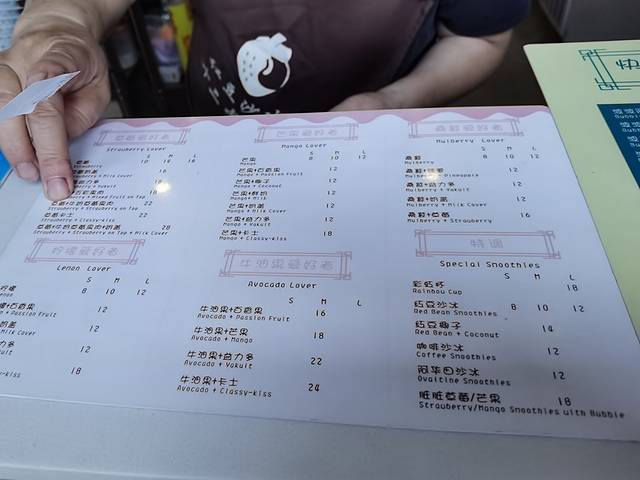 草莓爱好者
Strawberry Lover
S M L
草莓 10 16 18
Strawberry
16
Strawberry + Milk Cover
Strawberry + Yakult
22
Strawberry + Strawberry on Top
草莓卡士 22
Strawberry + Classy-kiss
28
Strawberry + Strawberry on Top + Milk Cover
柠檬爱好者
Lemon Lover
S M L
柠檬 8 10 12
Lemon
柠檬+百香果 12
Lemon + Passion Fruit
奶盖 12
Milk Cover
力多 12
18
芒果爱好者
Mango Lover
S M L
芒果 8 10 12
Mango
芒果+百香果 12
Mango + Passion Fruit
芒果+椰子 12
Mango + Coconut
芒果+鲜奶 12
Mango + Milk
芒果+奶盖 12
Mango + Milk Cover
芒果+益力多 12
Mango + Yakult
芒果+卡士 18
Mango + Classy-kiss
牛油果爱好者
Avocado Lover
S M L
牛油果+百香果 16
Avocado + Passion Fruit
牛油果+芒果 18
Avocado + Mango
牛油果+益力多 22
Avocado + Yakult
牛油果+卡士 24
Avocado + Classy-kiss
桑葚爱好者
Mulberry Lover
S M L
桑葚 8 10 12
Mulberry
桑葚+菠萝 12
Mulberry + Pineapple
桑葚+益力多 12
Mulberry + Yakult
桑葚+奶盖 12
Mulberry + Milk Cover
桑葚+草莓 16
Mulberry + Strawberry
特调
Special Smoothies
S M L
彩虹杯 18
Rainbow Cup
红豆沙冰 8 10 12
Red Bean Smoothies
红豆椰子 14
Red Bean + Coconut
咖啡沙冰 12
Coffee Smoothies
阿华田沙冰 12
Ovaltine Smoothies
脏脏草莓/芒果 18
Strawberry/Mango Smoothies with Bubble
快